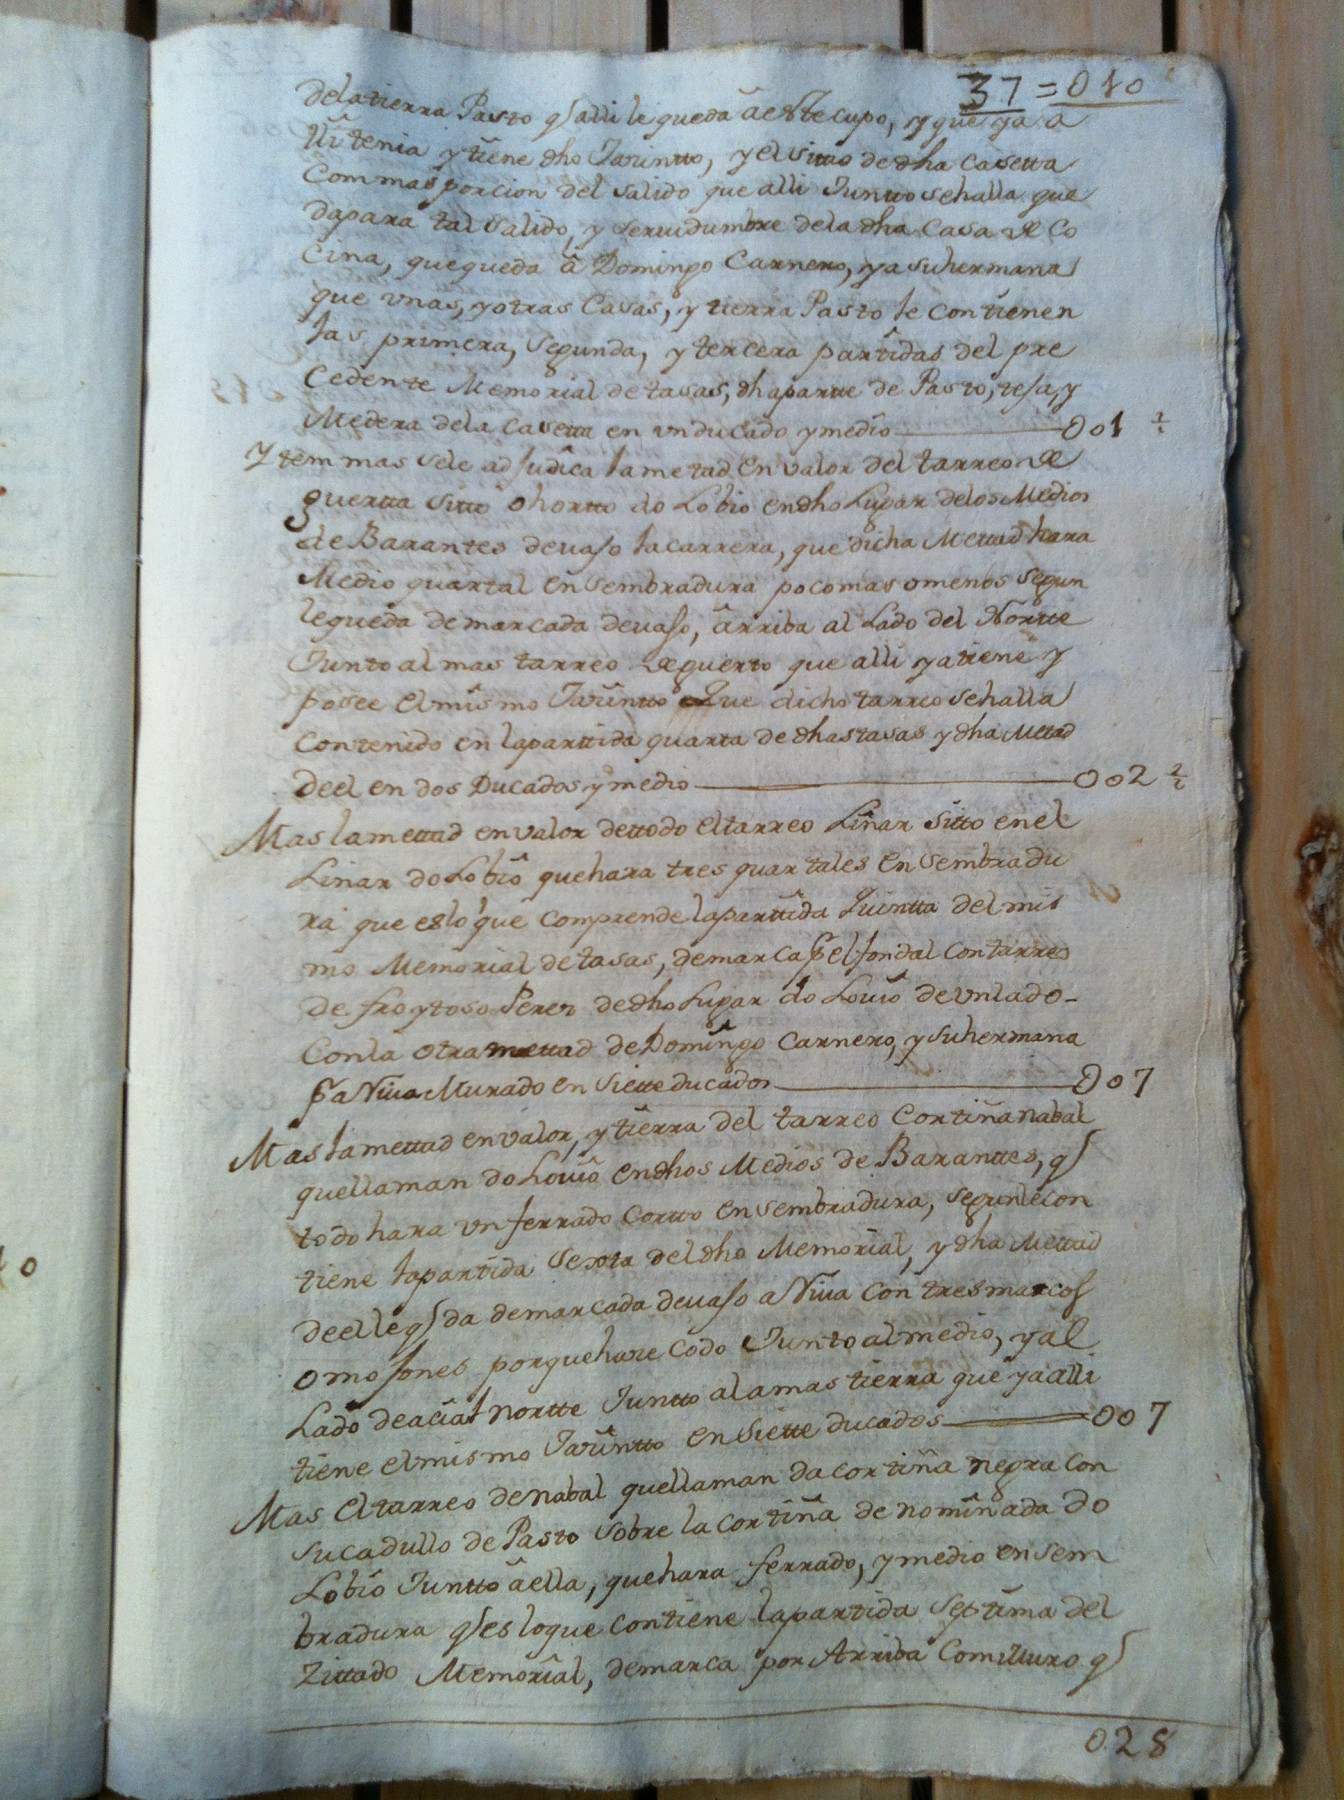 37 = 010
dela tierra Pasto q alli le queda â este cupo, y que ya a
lli tenia y tiene dho Jazintto, y el sittio de dha Casetta
Com mas porcion del salido que alli Juntto se halla que
da para tal salido, y seruidumbre dela dha Casa de Co
Cina, que queda â Domingo Carnero, y a su hermana
que vnas, y otras Casas, y tierra Pasto le Contienen
las primera, segunda, y tercera partidas del pre
Cedente Memorial de tasas, dha partte de Pasto, tesa, y
Medera dela Casetta en vn ducado y medio 001 1/2
Y ttem mas se le adJudica la metad en valor del tarreo de
guertta sitto ohortto do Lobio en dho Lugar delos Medios
de Barantes deuaJo la carrera, que dicha Mettad hara
Medio quartal en sembradura poco mas o menos segun
le queda demarcada deuaJo, ârriba al Lado del Nortte
Junto al mas tarreo de guerto que alli ya tiene y
posee el mismo Jazintto Que dicho tarreo se halla
Contenido en la parttida quarta de dhas tasas y dha Mettad
deel en dos Ducados y medio 002 1/2
Mas la mettad en valor de ttodo el tarreo Liñar sitto en el
Linar do Lobio que hara tres quartales en sembradu
ra que es lo que Comprende la parttida Quintta del mis
mo Memorial de tasas, demarca p el fondal Con tarreo
de froytoso Perez de dho Lugar do Louio de vn lado
Con la otra mettad de Domingo Carnero, y su hermana
pa Niua Murado en Siette ducados 007
Mas la mettad en valor, y tierra del tarreo Cortiña nabal
que llaman do Louio en dhos Medios de Baranttes, q
todo hara vn ferrado Cortto en sembradura, segun le Con
tiene la partida Sexta del dho Memorial, y dha Mettad
deel le qda demarcada deuaJo a Niua Con tres marcos
o moJones por que hare Codo Junto al medio, y al
Lado de acia l nortte Juntto a la mas tierra que ya alli
tiene el mismo Jazintto en Siette ducados 007
Mas el tarreo de nabal que llaman da Cortiña negra Con
su cadullo de Pasto sobre la Cortiña denominada do
Lobio Juntto âella, que hara ferrado, y medio en sem
bradura q es lo que Contiene la partida septima del
Zittado Memorial, demarca por Arriba Com Muro q
028